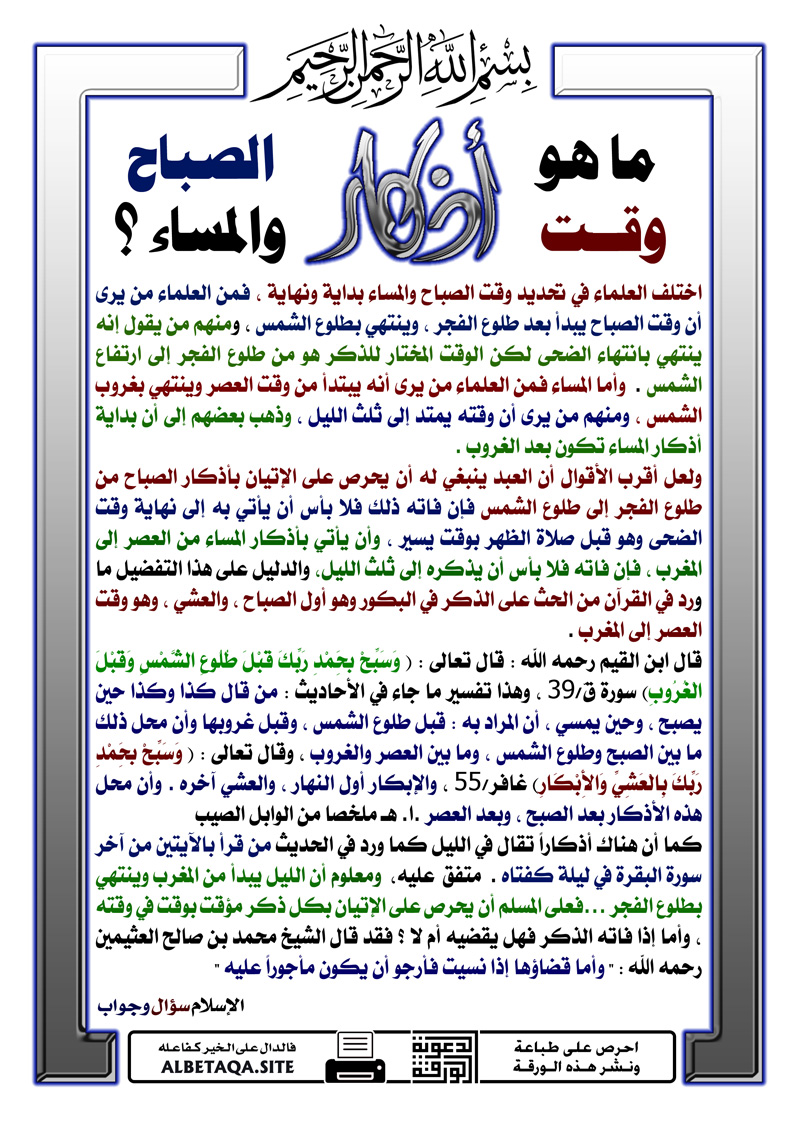 بسم الله الرحمن الرحيم
ما هو وقـت أذكار الصباح والمساء ؟
اختلف العلماء في تحديد وقت الصباح والمساء بداية ونهاية ، فمن العلماء من يرى
أن وقت الصباح يبدأ بعد طلوع الفجر ، وينتهي بطلوع الشمس ، ومنهم من يقول إنه
ينتهي بانتهاء الضحى لكن الوقت المختار للذكر هو من طلوع الفجر إلى ارتفاع
الشمس . وأما المساء فمن العلماء من يرى أنه يبتدأ من وقت العصر وينتهي بغروب
الشمس ، ومنهم من يرى أن وقته يمتد إلى ثلث الليل ، وذهب بعضهم إلى أن بداية
أذكار المساء تكون بعد الغروب .
ولعل أقرب الأقوال أن العبد ينبغي له أن يحرص على الإتيان بأذكار الصباح من
طلوع الفجر إلى طلوع الشمس فإن فاته ذلك فلا بأس أن يأتي به إلى نهاية وقت
الضحى وهو قبل صلاة الظهر بوقت يسير ، وأن يأتي بأذكار المساء من العصر إلى
المغرب ، فإن فاته فلا بأس أن يذكره إلى ثلث الليل، والدليل على هذا التفضيل ما
ورد في القرآن من الحث على الذكر في البكور وهو أول الصباح ، والعشي ، وهو وقت
العصر إلى المغرب .
قال ابن القيم رحمه الله : قال تعالى : ( وَسَبِّحْ بِحَمْدِ رَبِّكَ قَبْلَ طُلُوعِ الشَّمْسِ وَقَبْلَ
الْغُرُوبِ) سورة ق/39 ، وهذا تفسير ما جاء في الأحاديث : من قال كذا وكذا حين
يصبح ، وحين يمسي ، أن المراد به : قبل طلوع الشمس ، وقبل غروبها وأن محل ذلك
ما بين الصبح وطلوع الشمس ، وما بين العصر والغروب ، وقال تعالى : ( وَسَبِّحْ بِحَمْدِ
رَبِّكَ بِالْعَشِيِّ وَالْأِبْكَارِ) غافر/55 ، والإبكار أول النهار ، والعشي آخره . وأن محل
هذه الأذكار بعد الصبح ، وبعد العصر .ا. هـ ملخصا من الوابل الصيب
كما أن هناك أذكاراً تقال في الليل كما ورد في الحديث من قرأ بالآيتين من آخر
سورة البقرة في ليلة كفتاه . متفق عليه، ومعلوم أن الليل يبدأ من المغرب وينتهي
بطلوع الفجر ...فعلى المسلم أن يحرص على الإتيان بكل ذكر مؤقت بوقت في وقته
، وأما إذا فاته الذكر فهل يقضيه أم لا ؟ فقد قال الشيخ محمد بن صالح العثيمين
رحمه الله : " وأما قضاؤها إذا نسيت فأرجو أن يكون مأجوراً عليه "
الإسلام سؤال وجواب
احرص على طباعة
ونـشر هـذه الـورقـة
الورقة الدعوية
فالدال على الخير كفاعله
ALBETAQA.SITE